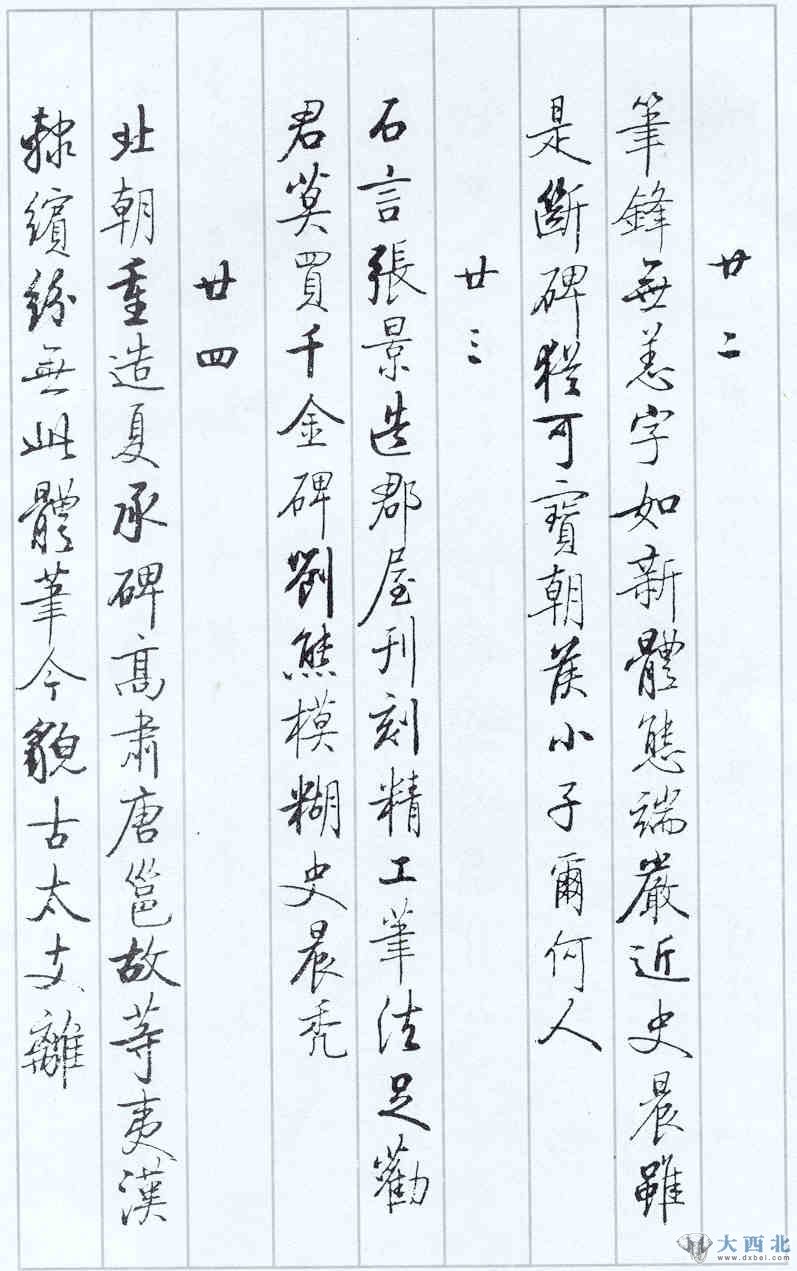 廿二
筆鋒無恙字如新體態端嚴近史晨雖
是斷碑猶可寶朝侯小子爾何人
廿三
石言張景造郡屋刊刻精工筆法足勸
君莫買千金碑劉熊模糊史晨禿
廿四
北朝重造夏承碑高肅唐邕故等夷漢
隸繽紛無此體筆今貌古太支離
大西北
www.dxbei.com